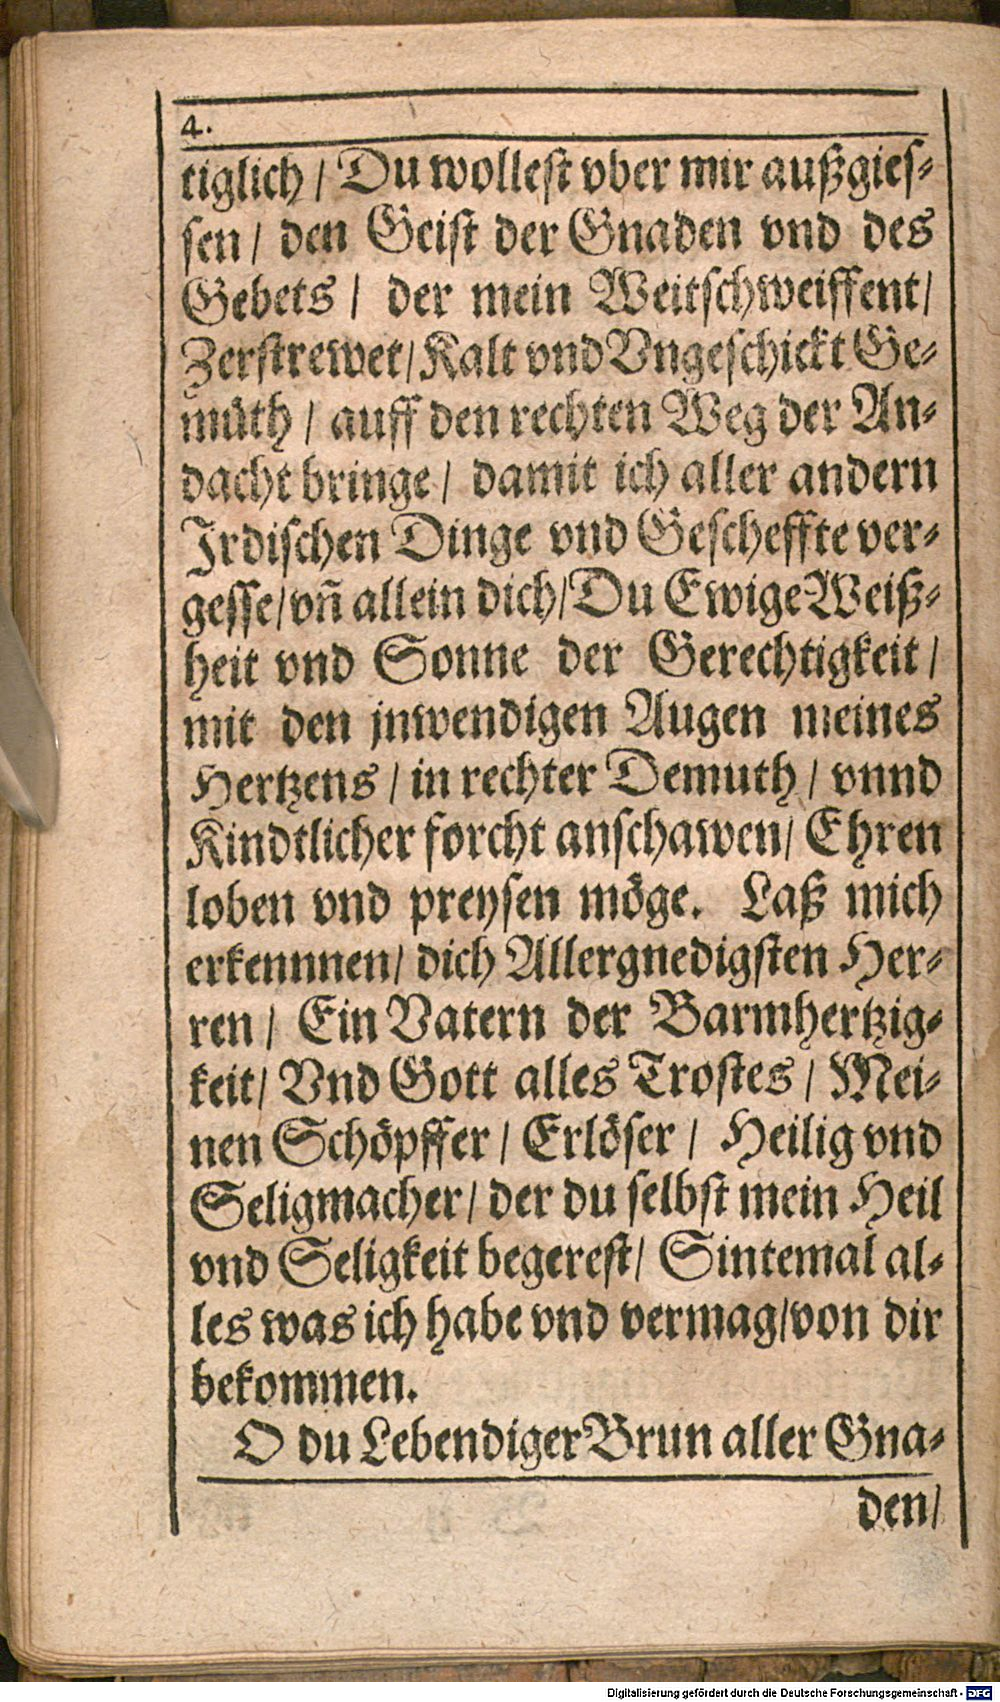 4.
tiglich / Du wollest vber mir außgies-
sen / den Geist der Gnaden vnd des
Gebets / der mein Weitschweiffent /
Zerstrewet / Kalt vnd Vngeschickt Ge-
müth / auff den rechten Weg der An-
dacht bringe / damit ich aller andern
Irdischen Dinge vnd Gescheffte ver-
gesse / vñ allein dich / Du Ewige Weiß-
heit vnd Sonne der Gerechtigkeit /
mit den jnwendigen Augen meines
Hertzens / in rechter Demuth / vnnd
Kindtlicher forcht anschawen / Ehren
loben vnd preysen möge. Laß mich
erkennnen / dich Allergnedigsten Her-
ren / Ein Vatern der Barmhertzig-
keit / Vnd Gott alles Trostes / Mei-
nen Schöpffer / Erlöser / Heilig vnd
Seligmacher / der du selbst mein Heil
vnd Seligkeit begerest / Sintemal al-
les was ich habe vnd vermag / von dir
bekommen.
O du Lebendiger Brun aller Gna-
den /
Digitalisierung gefördert durch die Deutsche Forschungsgemeinschaft - DFG